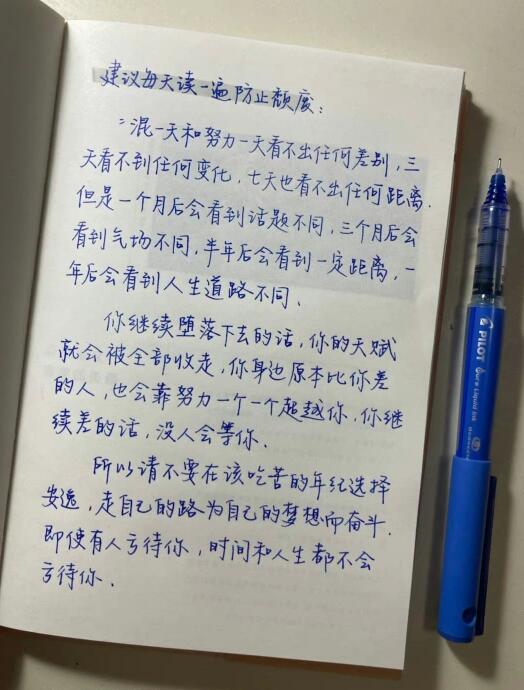 建议每天读一遍防止颓废：
"混一天和努力一天看不出任何差别，三
天看不到任何变化，七天也看不出任何距离.
但是一个月后会看到话题不同，三个月后会
看到气场不同，半年后会看到一定距离，一
年后会看到人生道路不同.
你继续堕落下去的话，你的天赋
就会被全部收走，你身边原本比你差
的人，也会靠努力一个一个超越你，你继
续差的话，没人会等你.
所以请不要在该吃苦的年纪选择
安逸，走自己的路为自己的梦想而奋斗.
即使有人亏待你，时间和人生都不会
亏待你.
PILOT